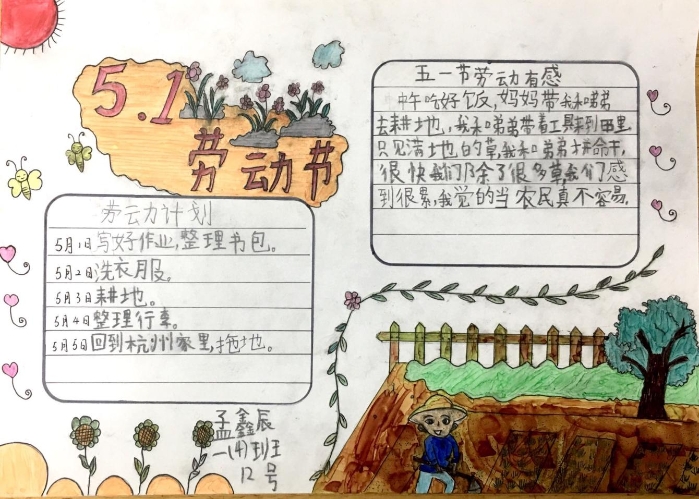 5.1
劳动节
劳动力计划
5月1日写好作业,整理书包。
5月2日洗衣服。
5月3日耕地。
5月4日整理行李。
5月5日回到杭州家里,拖地。
五一节劳动有感
中午吃好饭,妈妈带我和弟弟
去耕地,我和弟弟带着工具来到田里
只见满地的草,我和弟弟拼命干,
很快我们除了很多草,我们感
到很累,我觉的当农民真不容易。
孟鑫辰
一(4)班
12号